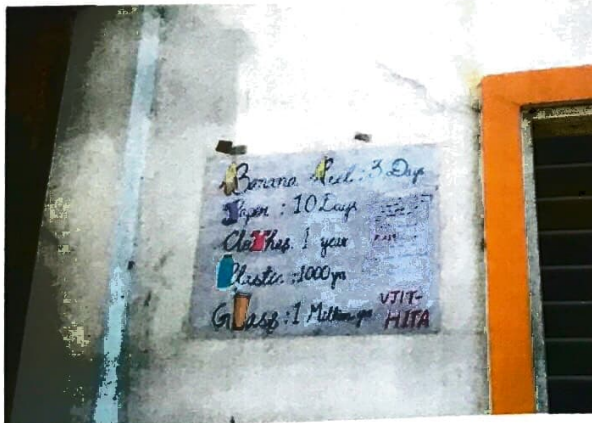 Banana Peel : 3 Days
Paper : 10 Days
Clothes. 1 year
Plastic : 1000 yrs
Glass : 1 Million yrs
VJIT-
HITA